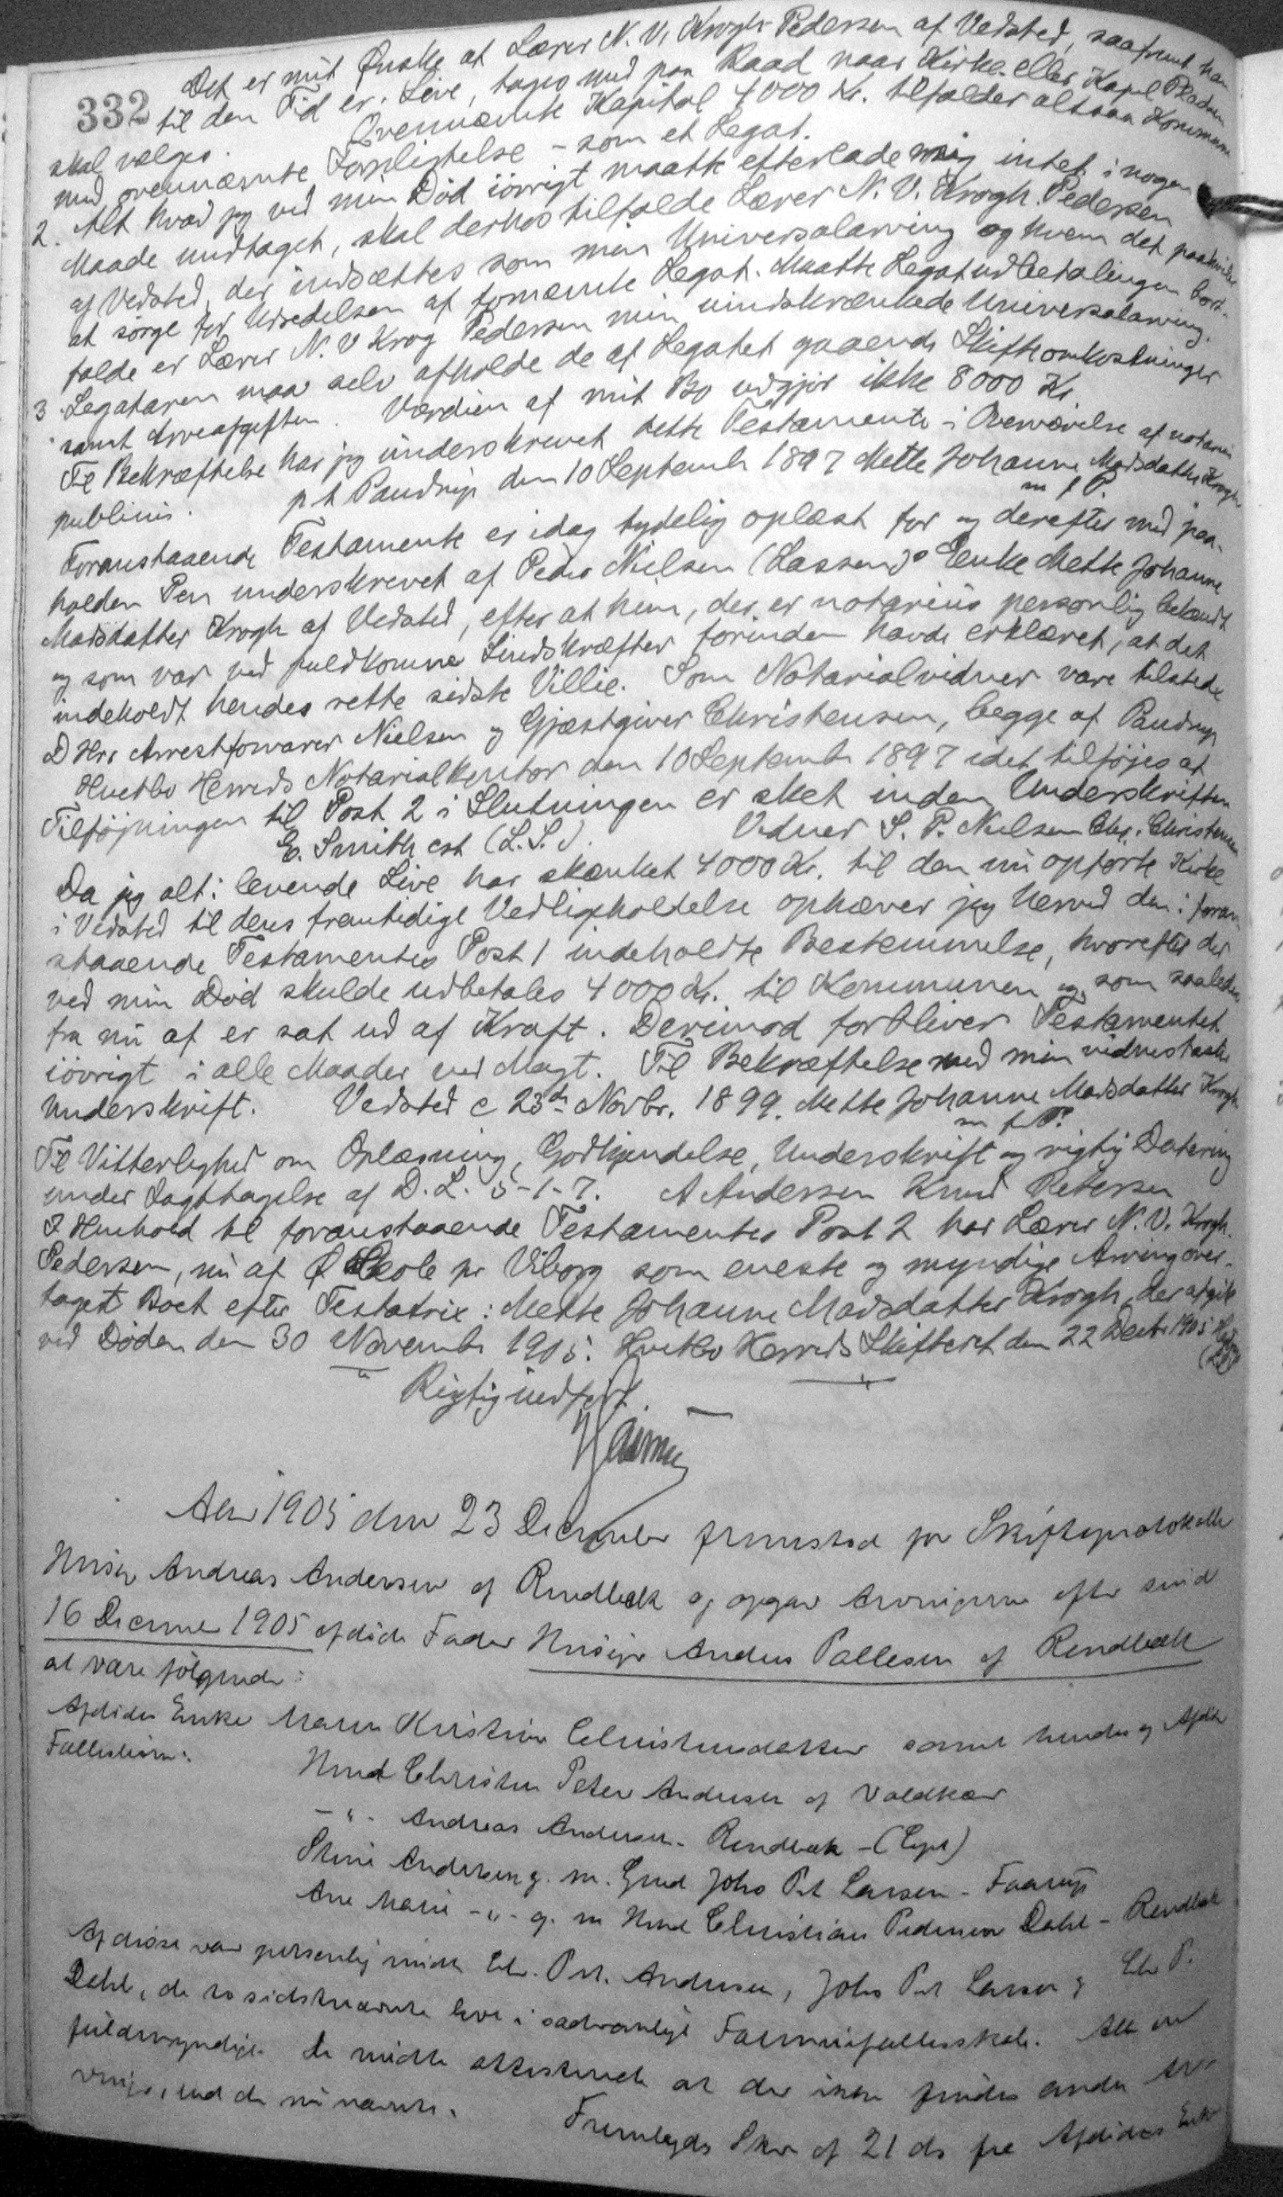 332
Det er mit Ønske at Lærer N. V. Krogh Pedersen af Vedsted, saafremt han
til den Tid er i Live, tages med paa Raad naar Kirke- eller Kapel Pladsen
skal vælges. Ovennævnte Kapital 4000 Kr. tilfalder altsaa Kommunen
med ovennævnte Forpligtelse - som et Legat.
2. Alt hvad jeg ved min Død iövrigt maatte efterlade mig intet i nogen
Maade undtaget, skal derhos tilfalde Lærer N. V. Krogh Pedersen
af Vedsted, der indsættes som min Universalarving og hvem det paahviler
at sörge for Udredelsen af fornævnte Legat. Maatte Legatudbetalingen bort-
falde er Lærer N. V Krog Pedersen min uindskrænkede Universalarving.
3. Legataren maa selv afholde de af Legatet gaaende Skifteomkostninger
samt Arveafgiften. Værdien af mit Bo udgjör ikke 8000 Kr.
Til Bekræftelse har jeg underskrevet dette Testamente i Overværelse af notarius
publicus. p t Pandrup den 10 Septembr 1897 Mette Johanne Madsdatter Krogh
m f P.
Foranstaaende Testamente er idag tydelig oplæst for og derefter med paa-
holden Pen underskrevet af Peder Nielsen (Lassens) Enke Mette Johanne
Madsdatter Krogh af Vedsted, efter at hun, der er notarius personlig bekendt
og som var ved fuldkomne Sindskræfter forinden havde erklæret, at det
indeholdt hendes rette sidste Villie. Som Notarialvidner vare tilstede
D Hrr Arrestforvarer Nielsen og Gjæstgiver Christensen, begge af Pandrup
Hvetbo Herreds Notarialkontor den 10 Septembr 1897 idet tilföjes at
Tilföjningen til Post 2 i Slutningen er sket inden Underskriften
E. Smith cst (L.S.). Vidner S. P. Nielsen Chr. Christensen
Da jeg alt i levende Live har skænket 4000 Kr. til den nu opförte Kirke
i Vedsted til dens fremtidige Vedligeholdelse ophæver jeg herved den i foran-
staaende Testamentes Post 1 indeholdte Bestemmelse, hvorefter der
ved min Död skulde udbetales 4000 Kr. til Kommunen og som saaledes
fra nu af er sat ud af Kraft. Derimod forbliver Testamentet
iövrigt i alle Maader ved Magt. Til Bekræftelse med min vidnefaste
Underskrift. Vedsted c 23de Novbr. 1899. Mette Johanne Madsdatter Krogh
m f P.
Til Vitterlighed om Oplæsning, Godkjendelse, Underskrift og rigtig Datering
under Iagttagelse af D. L. 5-1-7. A Andersen Knud Petersen
I Henhold til foranstaaende Testamentes Post 2 har Lærer N. V. Krogh-
Pedersen, nu af Ø Skole pr Viborg som eneste og myndige Arving over-
taget Boet efter Testatrix: Mette Johanne Madsdatter Krogh, der afgik
ved Døden den 30 Novembr 1905. Hvetbo Herreds Skifteret den 22 Decbr 1905
Rigtig indført
Aar 1905 den 23 December fremstod for Skifteprotokollen
Husejer Andreas Andersen af Rendbæk og opgav Arvingerne efter sin d
16 December 1905 afdøde Fader Husejer Anders Pallesen af Rendbæk
at være følgende:
Afdødes Enke Maren Kristine Christensdatter samt hendes og Afdødes
Fællesbørn:
Hmd Christen Peter Andersen af Valdkær
-"- Andreas Andersen - Rendbæk - (Cpt)
Stine Andersen g. m. Gmd Johs Pet Larsen - Faarup
Ane Marie -"- g. m Hmd Christian Pedersen Dahl - Rendbæk
Af disse var personlig mødt Chr. Pet. Andersen, Johs Pet Larsen og Chr P.
Dahl, de to sidstnævnte leve i sædvanligt Formuefællesskab. Alle ere
fuldmyndige. De mødte attesterede at der ikke findes andre Ar-
vinger, end de nu nævnte.
Fremlagdes Skr af 21 ds fra Afdødes Enke